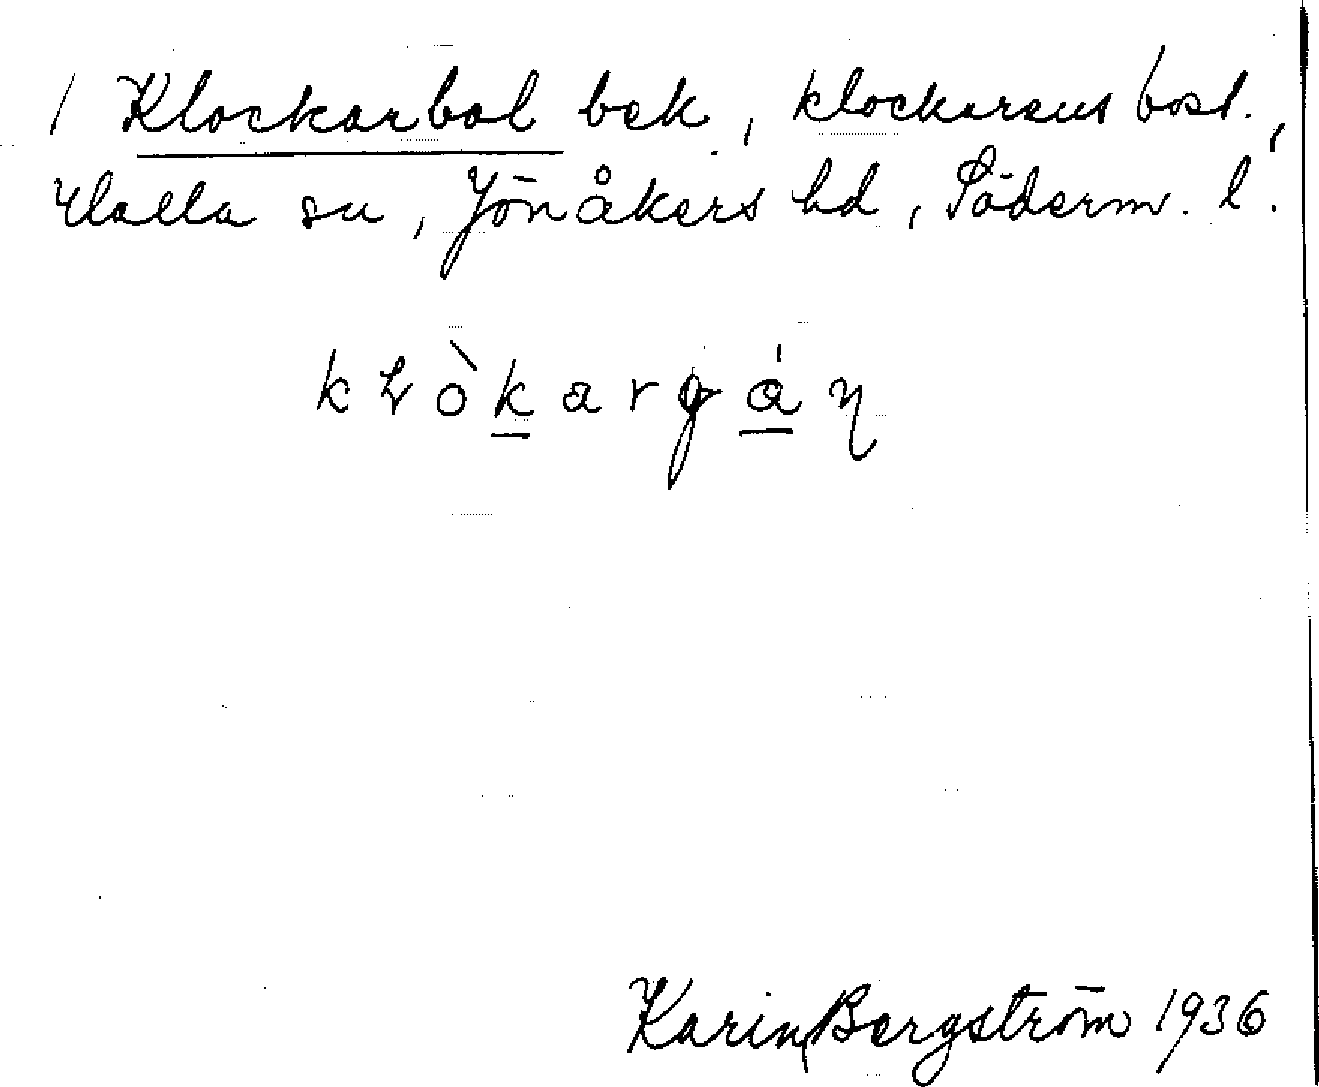 1 Klockarbol bek, klockarens bost.,
Halla sn, Jönåkers hd, Söderm. l.
Karin Bergström 1936